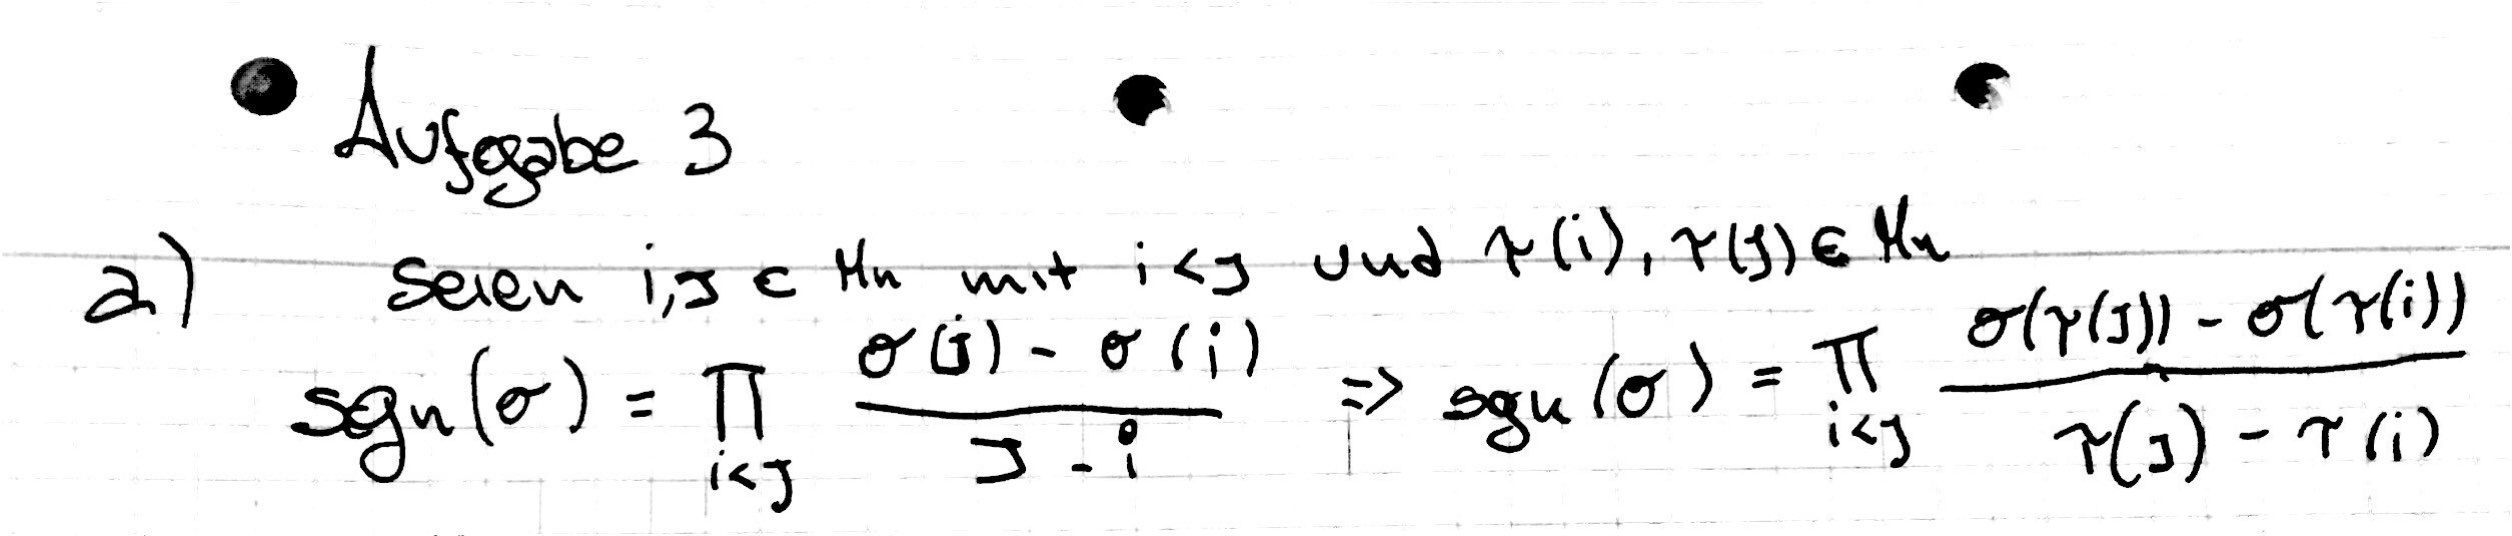 Aufgabe 3
a) Seien i,j ∈ Mn mit i<j und τ(i), τ(j) ∈ Mn
sgn(σ) = ∏_{i<j} (σ(j) - σ(i))/(j - i) => sgn(σ) = ∏_{i<j} (σ(τ(j)) - σ(τ(i)))/(τ(j) - τ(i))